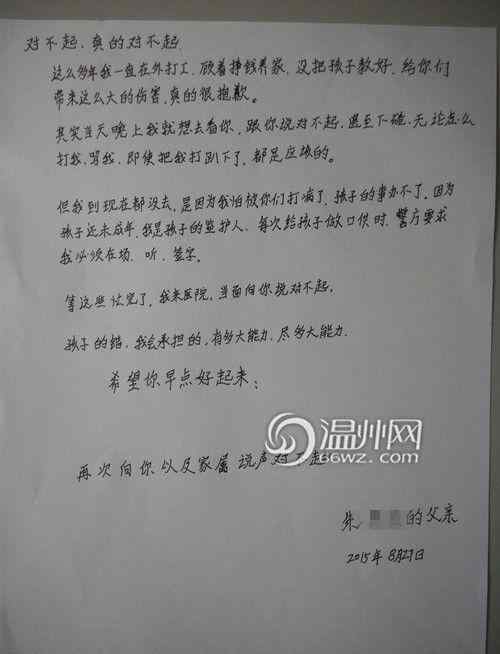 对不起，真的对不起
这么多年我一直在外打工，顾着挣钱养家，没把孩子教好，给你们
带来这么大的伤害，真的很抱歉。
其实当天晚上我就想去看你，跟你说对不起，甚至下跪，无论怎么
打我，骂我，即使把我打趴下了，都是应该的。
但我到现在都没去，是因为我怕被你们打病了，孩子的事办不了。因为
孩子还未成年，我是孩子的监护人，每次给孩子做口供时，警方要求
我必须在场、听、签字。
等这些忙完了，我来医院，当面向你说对不起。
孩子的错，我会承担的，有多大能力，尽多大能力。
希望你早点好起来；
再次向你以及家属说声对不起
温州网
66wz.com
朱 的父亲
2015年8月27日